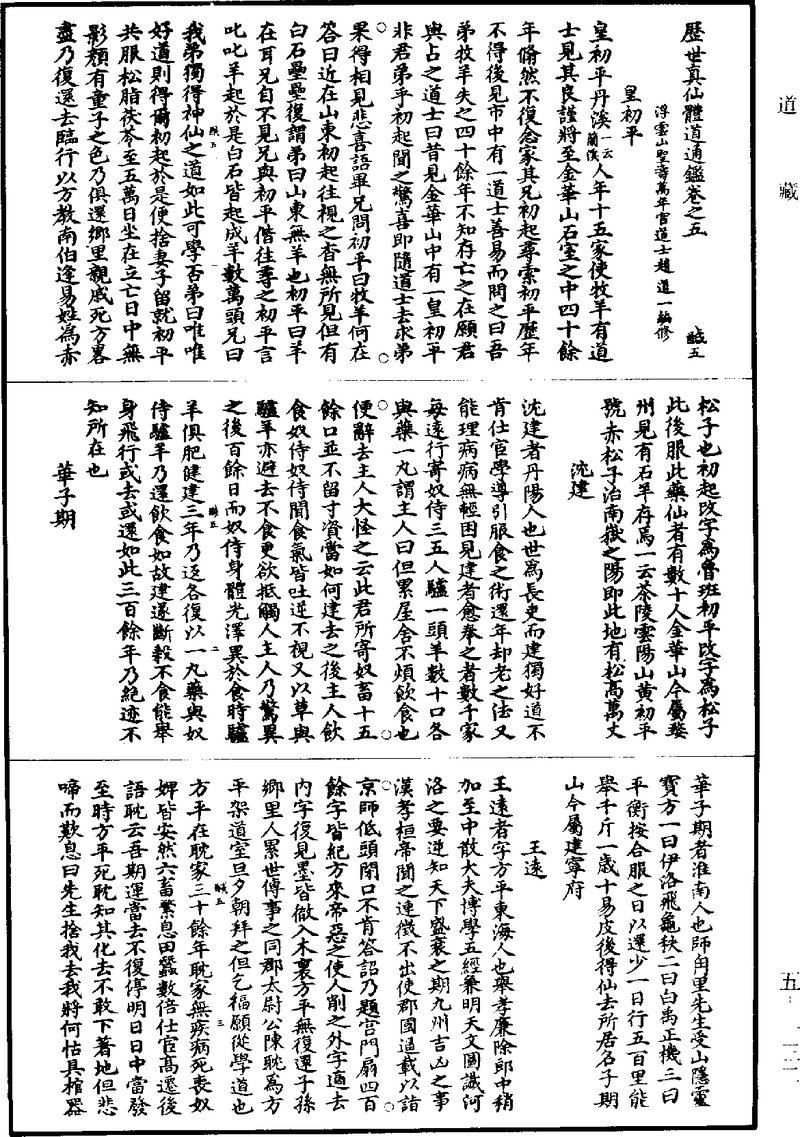 道藏
歷世真仙體道通鑑卷之五
醎五
浮雲山聖壽萬年宮道士趙道一編修
皇初平
皇初平丹溪一云蘭溪人年十五家使牧羊有道
士見其良謹將至金華山石室之中四十餘
年翛然不復念家其兄初起尋索初平歷年
不得後見市中有一道士善易而問之曰吾
弟牧羊失之四十餘年不知存亡之在願君
與占之道士曰昔見金華山中有一皇初平
非君弟乎初起聞之驚喜即隨道士去求弟
果得相見悲喜語畢兄問初平曰牧羊何在
答曰近在山東初起往視之杳無所見但有
白石壘壘復謂弟曰山東無羊也初平曰羊
在耳兄自不見兄與初平偕往尋之初平言
叱叱羊起於是白石皆起成羊數萬頭兄曰
我弟獨得神仙之道如此可學否弟曰唯唯
好道則得爾初起於是便捨妻子留就初平
共服松脂茯苓至五萬日坐在立亡日中無
影顏有童子之色乃俱還鄉里親戚死方畧
盡乃復還去臨行以方教南伯逢易姓為赤
松子也初起改字為魯班初平改字為松子
此後服此藥仙者有數十人金華山今屬婺
州見有石羊存焉一云茶陵雲陽山黃初平
號赤松子治南嶽之陽即此地有松高萬丈
沈建
沈建者丹陽人也世為長吏而建獨好道不
肯仕宦學導引服食之術還年却老之法又
能理病病無輕困見建者愈奉之者數千家
每遠行寄奴侍三五人驢一頭羊數十口各
與藥一丸謂主人曰但累屋舍不煩飲食也
便辭去主人大怪之云此君所寄奴畜十五
餘口並不留寸資當如何建去之後主人飲
食奴侍奴侍聞食氣皆吐逆不視又以草與
驢羊亦避去不食更欲抵觸人主人乃驚異
之後百餘日而奴侍身體光澤異於食時驢
羊俱肥健建三年乃返各復以一丸藥與奴
侍驢羊乃還飲食如故建遂斷穀不食能舉
身飛行或去或還如此三百餘年乃絕迹不
知所在也
華子期
華子期者淮南人也師甪里先生受山隱靈
寶方一曰伊洛飛龜秩二曰白禹正機三曰
平衡按合服之日以還少一日行五百里能
舉千斤一歲十易皮後得仙去所居名子期
山今屬建寧府
王遠
王遠者字方平東海人也舉孝廉除郎中稍
加至中散大夫博學五經兼明天文圖讖河
洛之要逆知天下盛衰之期九州吉凶之事
漢孝桓帝聞之連徵不出使郡國逼載以詣
京師低頭閉口不肯答詔乃題宮門扇四百
餘字皆紀方來帝惡之使人削之外字適去
內字復見墨皆徹入木裏方平無復還子孫
鄉里人累世傳事之同郡太尉公陳耽為方
平架道室旦夕朝拜之但乞福願從學道也
方平在耽家三十餘年耽家無疾病死喪奴
婢皆安然六畜繁息田蠶數倍仕宦高遷後
語耽云吾期運當去不復停明日日中當發
至時方平死耽知其化去不敢下著地但悲
啼而歎息曰先生捨我去我將何怙具棺器